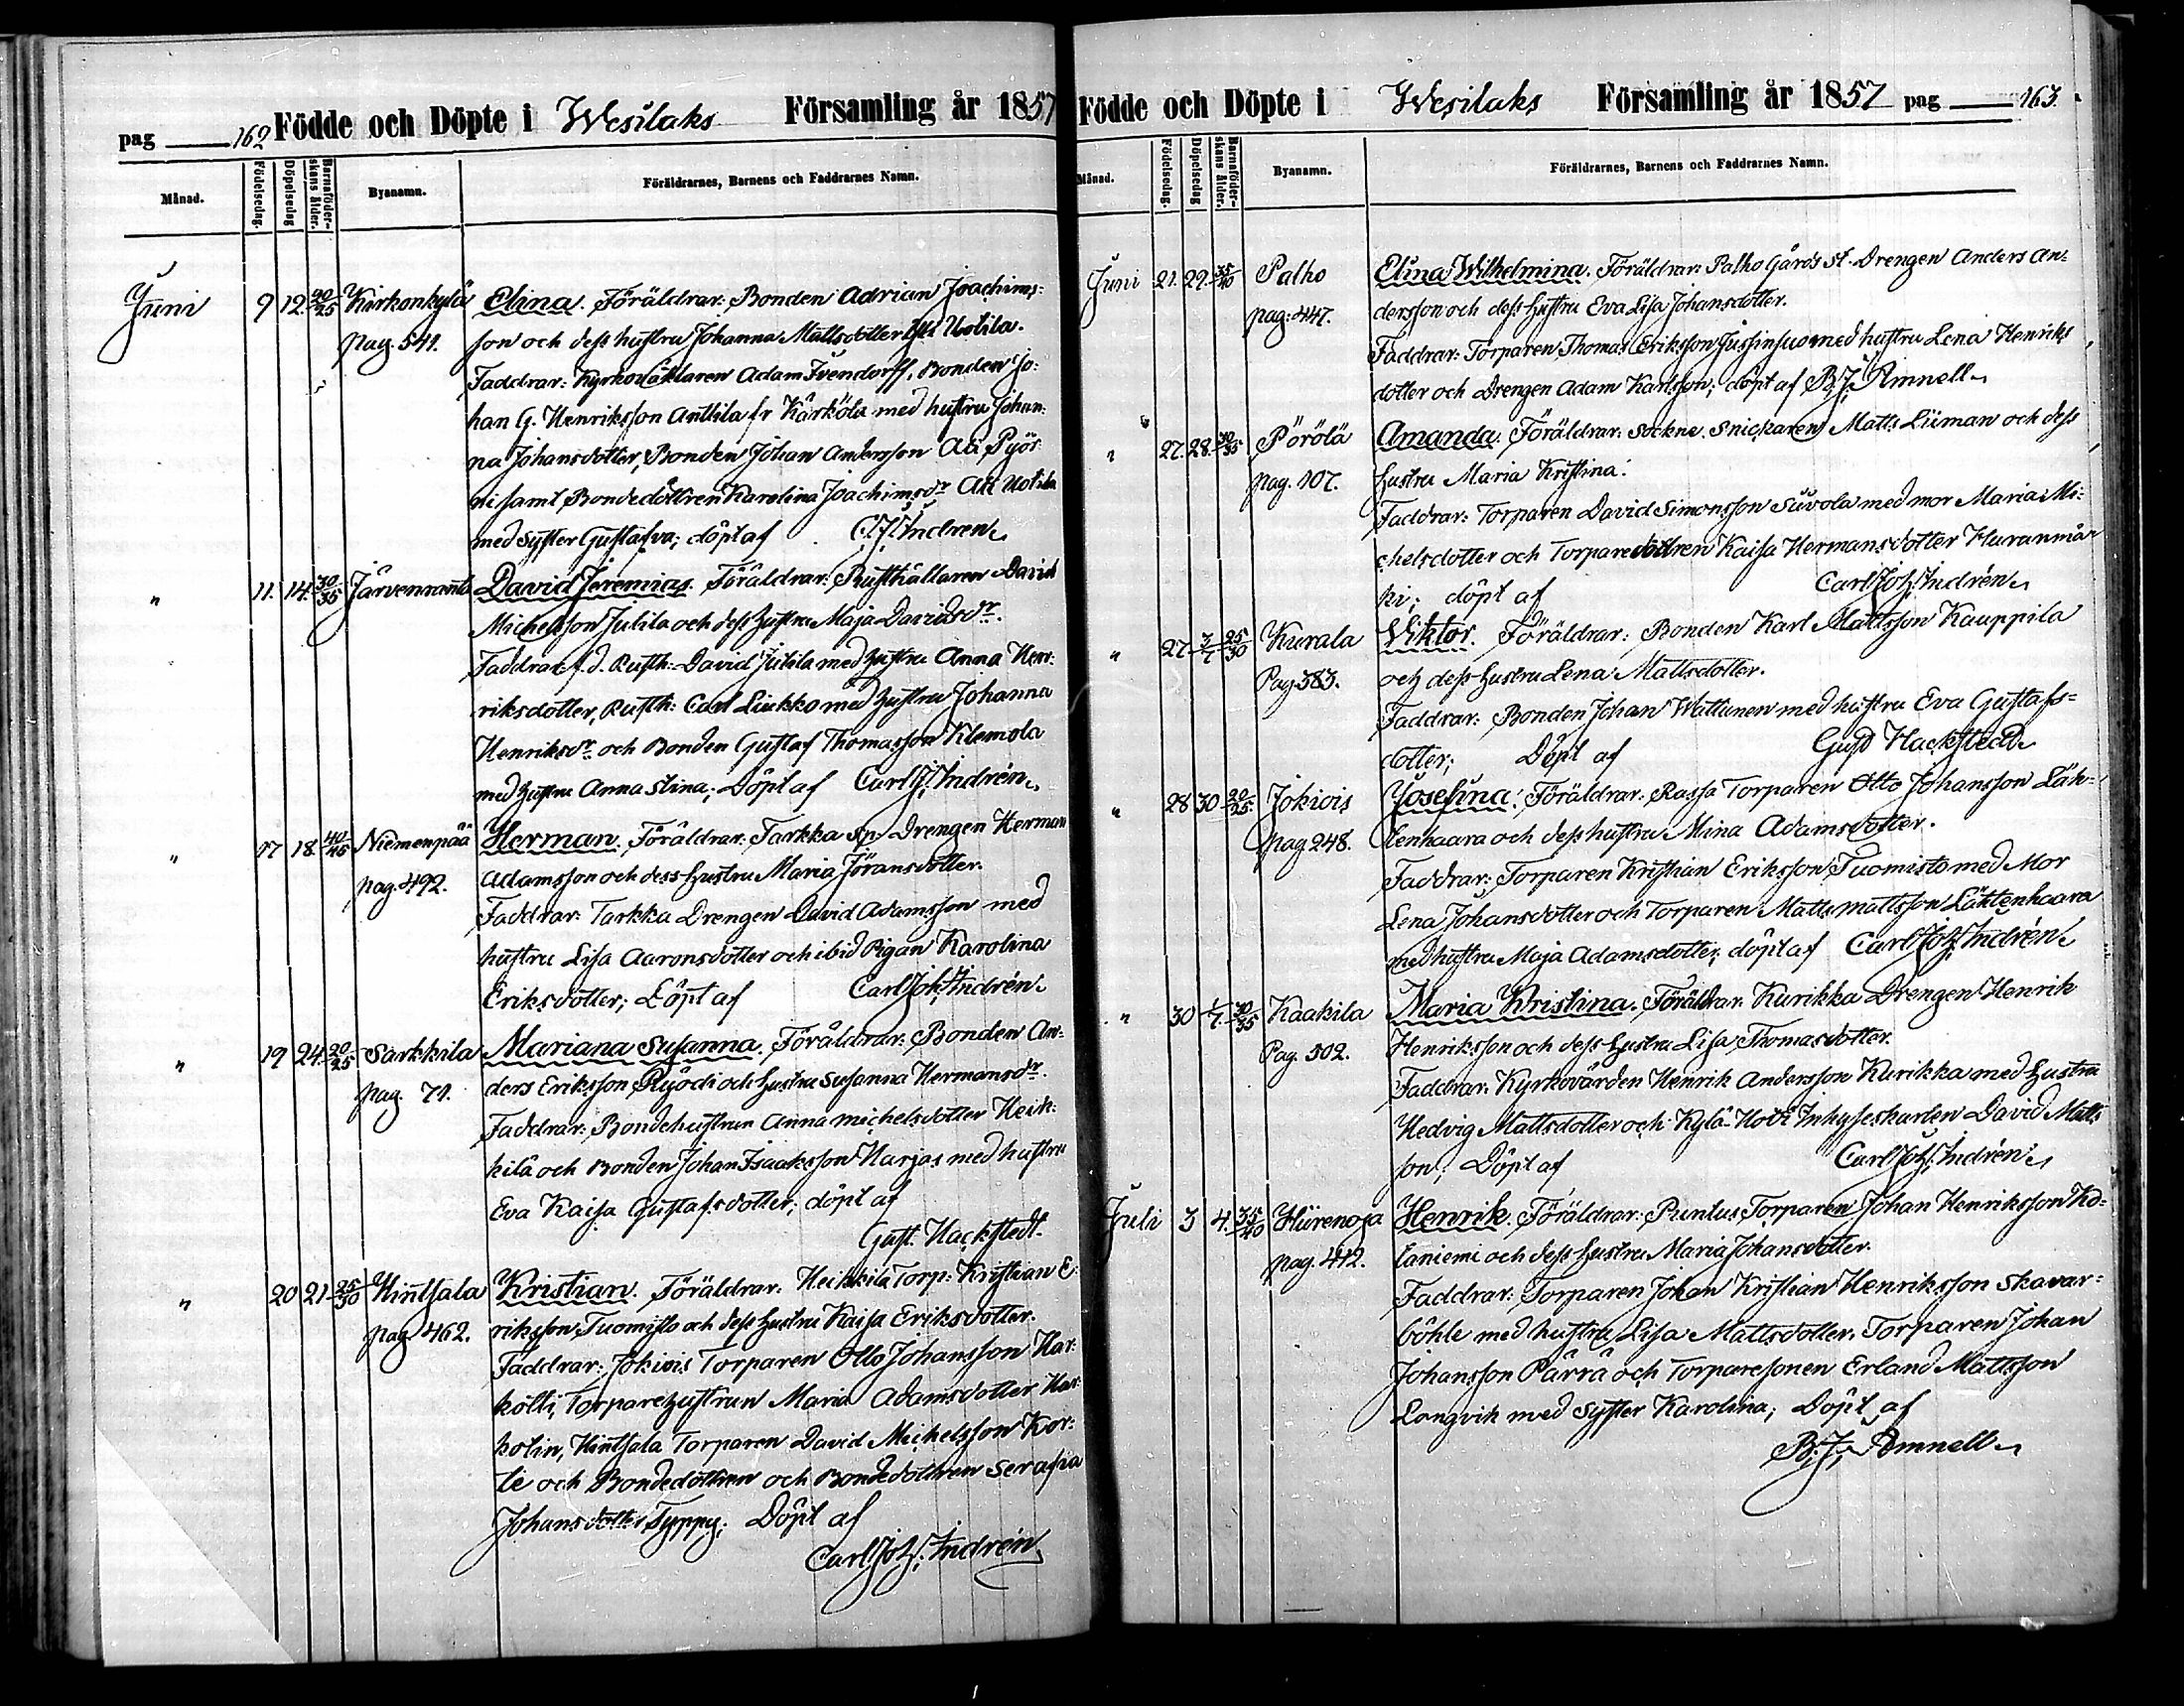 pag 162 Födde och Döpte i Wesilaks Församling år 1857
Månad. Födelsedag. Döpelsedag Barnaföderskans ålder. Byanamn. Föräldrarnes, Barnens och Faddrarnes Namn.
Juni 9 12. 40/45 Kirkonkylä Elina. Föräldrar: Bonden Adrian Joachims-
pag. 541. son och dess hustru Johanna Mattsdotter Uotila.
Faddrar: Bonden Jo:
han G. Henriksson Anttila fr Kärkölä med hustru Johan:
na Johansdotter, Bonden Johan Andersson Ali Pyör
ni samt Bondedottren Karolina Joachimsdr Ali Uotila
med syster Gustafva; döpt af C. J. Indren
" 11. 14. 30/35 Järvenranta David Jeremias. Föräldrar: Rusthållaren David
Michelsson Jutila och dess hustru Maja Davidsdr.
Faddrar: f. d. Rusth: David Jutila med hustru Anna Hen:
riksdotter, Rusth: Carl Liukko med hustru Johanna
Henriksdr och Bonden Gustaf Thomasson Klemola
med hustru Anna Stina; Döpt af Carl J. Indrén
" 17 18. 40/45 Niemenpää Herman. Föräldrar: Tarkka Drengen Herman
pag. 492. Adamsson och dess Hustru Maria Jöransdotter.
Faddrar: Tarkka Drengen David Adamsson med
hustru Lisa Aaronsdotter och ibid Pigan Karolina
Eriksdotter; Döpt af Carl Joh. Indrén
" 19 24. 20/25 Sarkkila Mariana Susanna. Föräldrar: Bonden An-
pag. 71. ders Eriksson Ryödi och Hustru Susanna Hermansdr.
Faddrar: Bondehustrun Anna Michelsdotter Heik:
kilä och Bonden Johan Isaaksson Harjas med hustru
Eva Kaisa Gustafsdotter; döpt af
Gust. Hackstedt.
" 20 21. 25/30 Hinttsala Kristian. Föräldrar: Heikkilä Torp: Kristian E:
pag 462. riksson Tuomisto och dess Hustru Kaisa Eriksdotter.
Faddrar: Jokiois Torparen Otto Johansson Har:
kölli, Torparehustrun Maria Adamsdotter
Hinttsala Torparen David Michelsson Kor:
te och Bondedottren och Bondedottren Serafia
Johansdotter Typpy; Döpt af
Carl Joh. Indrén
Födde och Döpte i Wesilaks Församling år 1857 pag 163.
Månad. Födelsedag. Döpelsedag Barnaföderskans ålder. Byanamn. Föräldrarnes, Barnens och Faddrarnes Namn.
Juni 21. 29. 35/40 Palho Elina Wilhelmina. Föräldrar: Palho Gårds St. Drengen Anders An:
pag: 447. dersson och dess Hustru Eva Lisa Johansdotter.
Faddrar: Torparen Thomas Eriksson Jussinsuo med hustru Lena Henriks
dotter och Drengen Adam Karlsson; döpt af B. J. Amnell
" 27. 28. 30/35 Pörölä Amanda. Föräldrar: Sockne. Snickaren Matts Liiman och dess
pag. 107. Hustru Maria Kristina.
Faddrar: Torparen David Simonsson Suvola med mor Maria Mi:
chelsdotter och Torparedottren Kaisa Hermansdotter Huranmä
ki; döpt af Carl Joh. Indrén
" 27 3/7 25/30 Kurala Viktor. Föräldrar: Bonden Karl Mattsson Kauppila
Pag. 383. och dess Hustru Lena Mattsdotter.
Faddrar: Bonden Johan Wattunen med hustru Eva Gustafs-
dotter; Döpt af Gust Hackstedt
" 28 30 20/25. Jokiois Josefina. Föräldrar: Rassa Torparen Otto Johansson Läh-
pag. 248. tenhaara och dess hustru Mina Adamsdotter.
Faddrar: Torparen Kristian Eriksson Tuomisto med Mor
Lena Johansdotter och Torparen Matts Mattsson Lähtenhaara
med hustru Maja Adamsdotter; döpt af Carl Joh. Indrén
" 30 1/7. 30/35 Kaakila Maria Kristina. Föräldrar: Kurikka Drengen Henrik
Pag. 502. Henriksson och dess Hustru Lisa Thomasdotter.
Faddrar: Kyrkovärden Henrik Andersson Kurikka med Hustru
Hedvig Mattsdotter och Kylä-Hovi Inhyseskarlen David Matts
son; Döpt af Carl Joh. Indrén
Juli 3 4. 35/40 Hiirenoja Henrik. Föräldrar: Puntus Torparen Johan Henriksson Ko-
pag. 412. taniemi och dess Hustru Maria Johansdotter.
Faddrar: Torparen Johan Kristian Henriksson Skavar-
böhle med hustru Lisa Mattsdotter, Torparen Johan
Johansson Pärrä och Torparesonen Erland Mattsson
Longvik med syster Karolina; Döpt af
B. J. Amnell